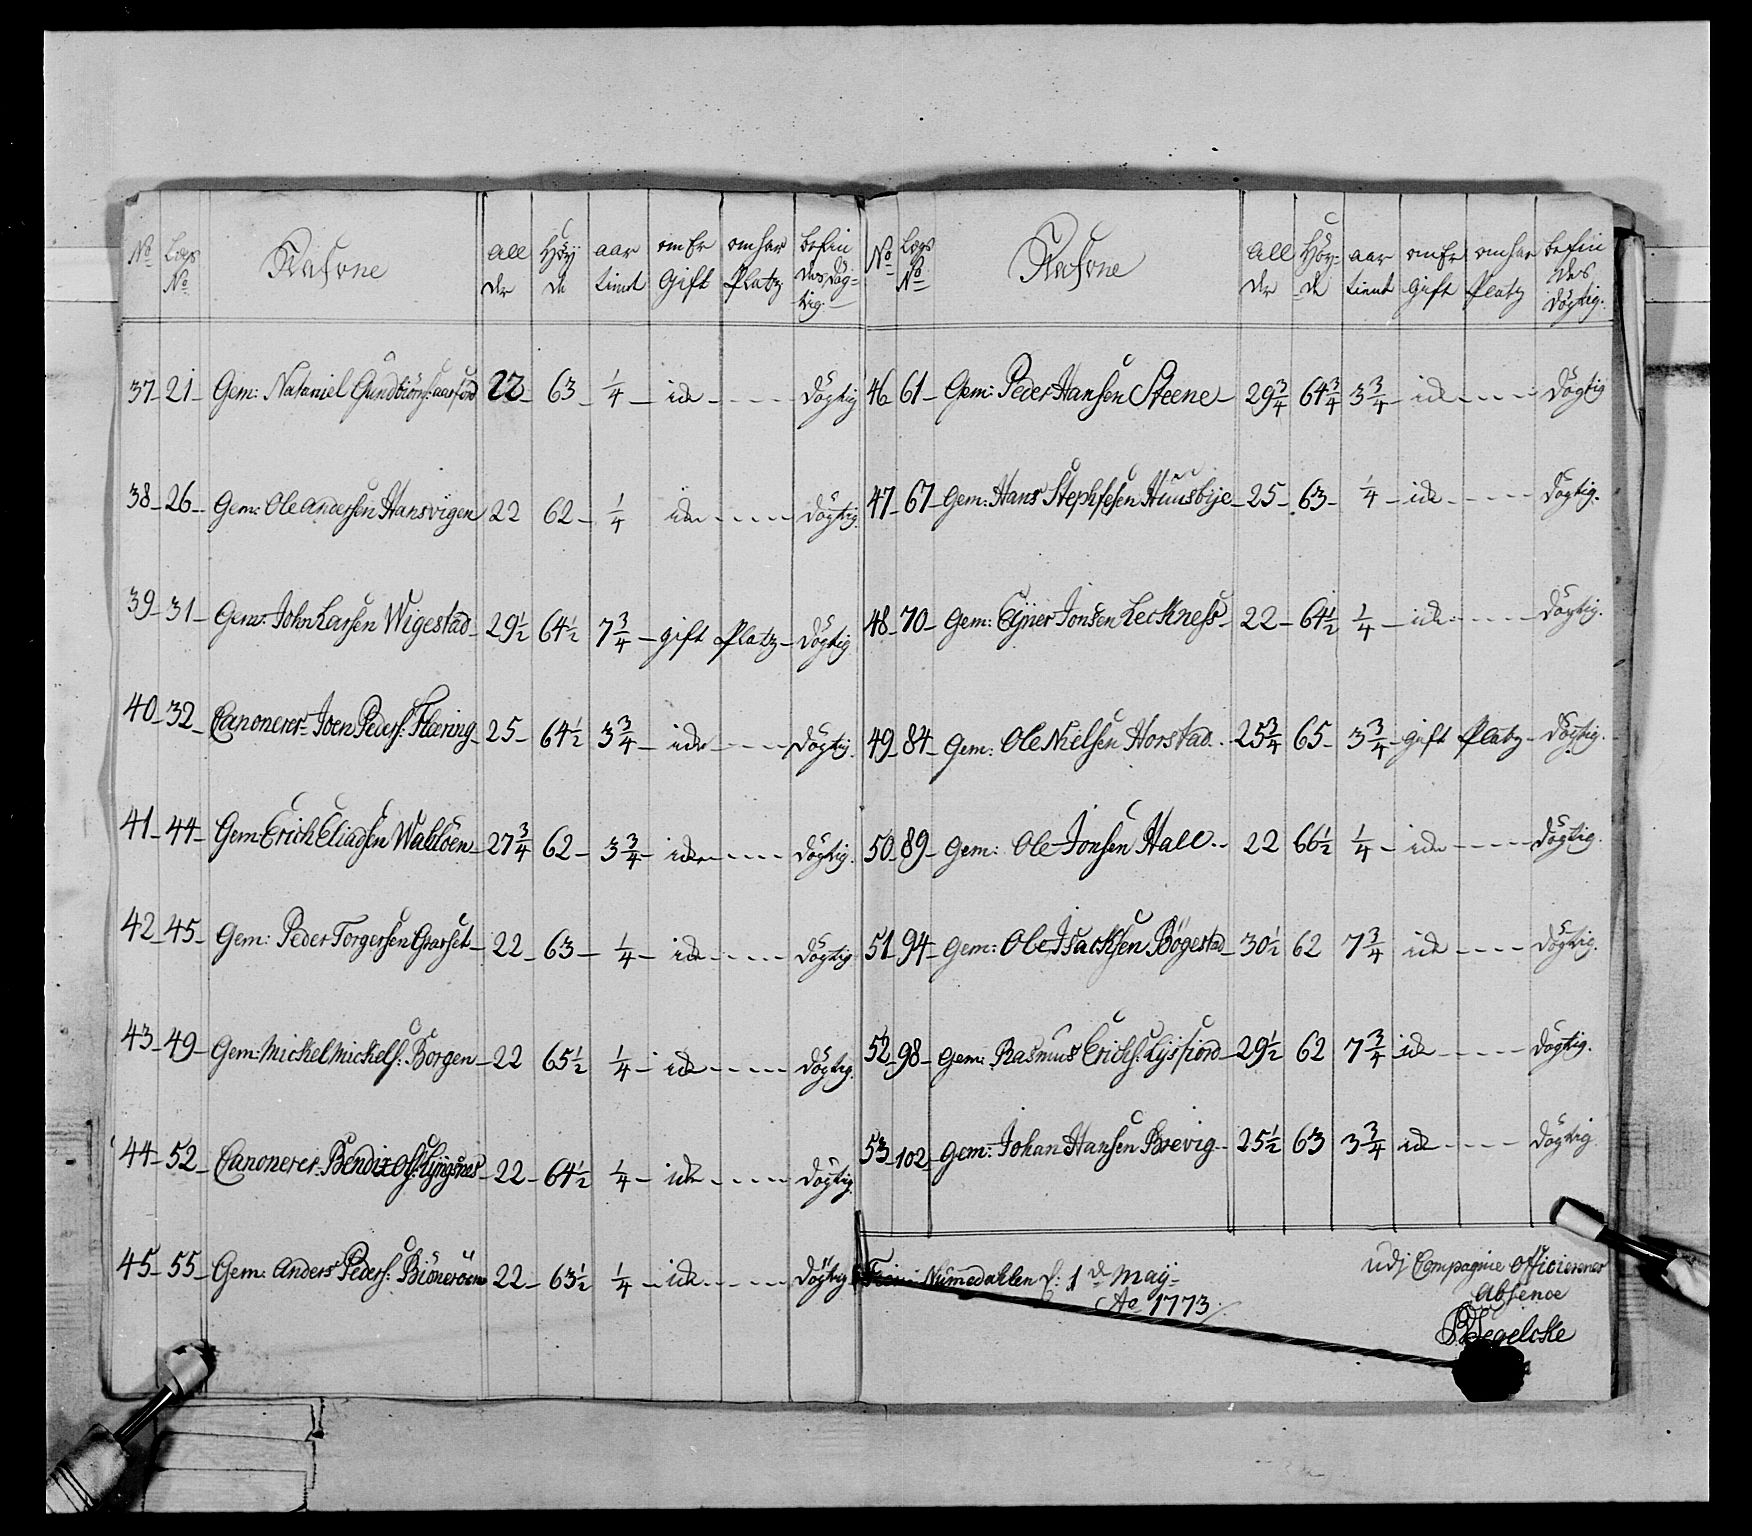 No Lægs No Nafvne Allder Höyde aar tient om Er Gift om har Platz befindes dögtig
37 21 Gem: Nataniel Gundbiörns: aarfor 22 63 1/4 ide - - - - Dögtig
38 26 Gem: Ole Andersen Hansvigen 22 62 1/4 ide - - - - Dögtig
39 31 Gem: John Larsen Wigestad 29½ 64½ 7¾ gift Platz Dögtig
40 32 Canonerer Joen Peders: Flæring 25 64½ 3¾ ide - - - - Dögtig
41 44 Gem: Erich Eliadsen Wahlöen 27¾ 62 3¾ ide - - - - Dögtig
42 45 Gem: Peder Torgersen Graset 22 63 1/4 ide - - - - Dögtig
43 49 Gem: Mickel Mickels: Borgen 22 65½ 1/4 ide - - - - Dögtig
44 52 Canonerer Bendix Ols: Lÿngsnes 22 64½ 1/4 ide - - - - Dögtig
45 55 Gem: Anders Peders: Biöneröen 22 63½ 1/4 ide - - - - Dögtig
No Lægs No Nafvne Allder Höyde aar tient om Er gift om har Platz befindes dögtig
46 61 Gem: Peder Hansen Steene 29¾ 64¾ 3¾ ide - - - - Dögtig
47 67 Gem: Hans Stephfesen Huusbije 25 63 1/4 ide - - - - Dögtig
48 70 Gem: Ejner Jonsen Leckness 22 64½ 1/4 ide - - - - Dögtig
49 84 Gem: Ole Nielsen Horstad 25¾ 65 3¾ gift Platz Dögtig
50 89 Gem: Ole Jonsen Hall 22 66½ 1/4 ide - - - - Dögtig
51 94 Gem: Ole Isacksen Bögestad 30½ 62 7¾ ide - - - - Dögtig
52 98 Gem: Rasmus Erichs: Lysfiord 29½ 62 7¾ ide - - - - Dögtig
53 102 Gem: Johan Hansen Brevig 25½ 63 3¾ ide - - - - Dögtig
Numedahlen d: 1 de Maÿ
Ao 1773
udj Compagnie Officierernes
Absence